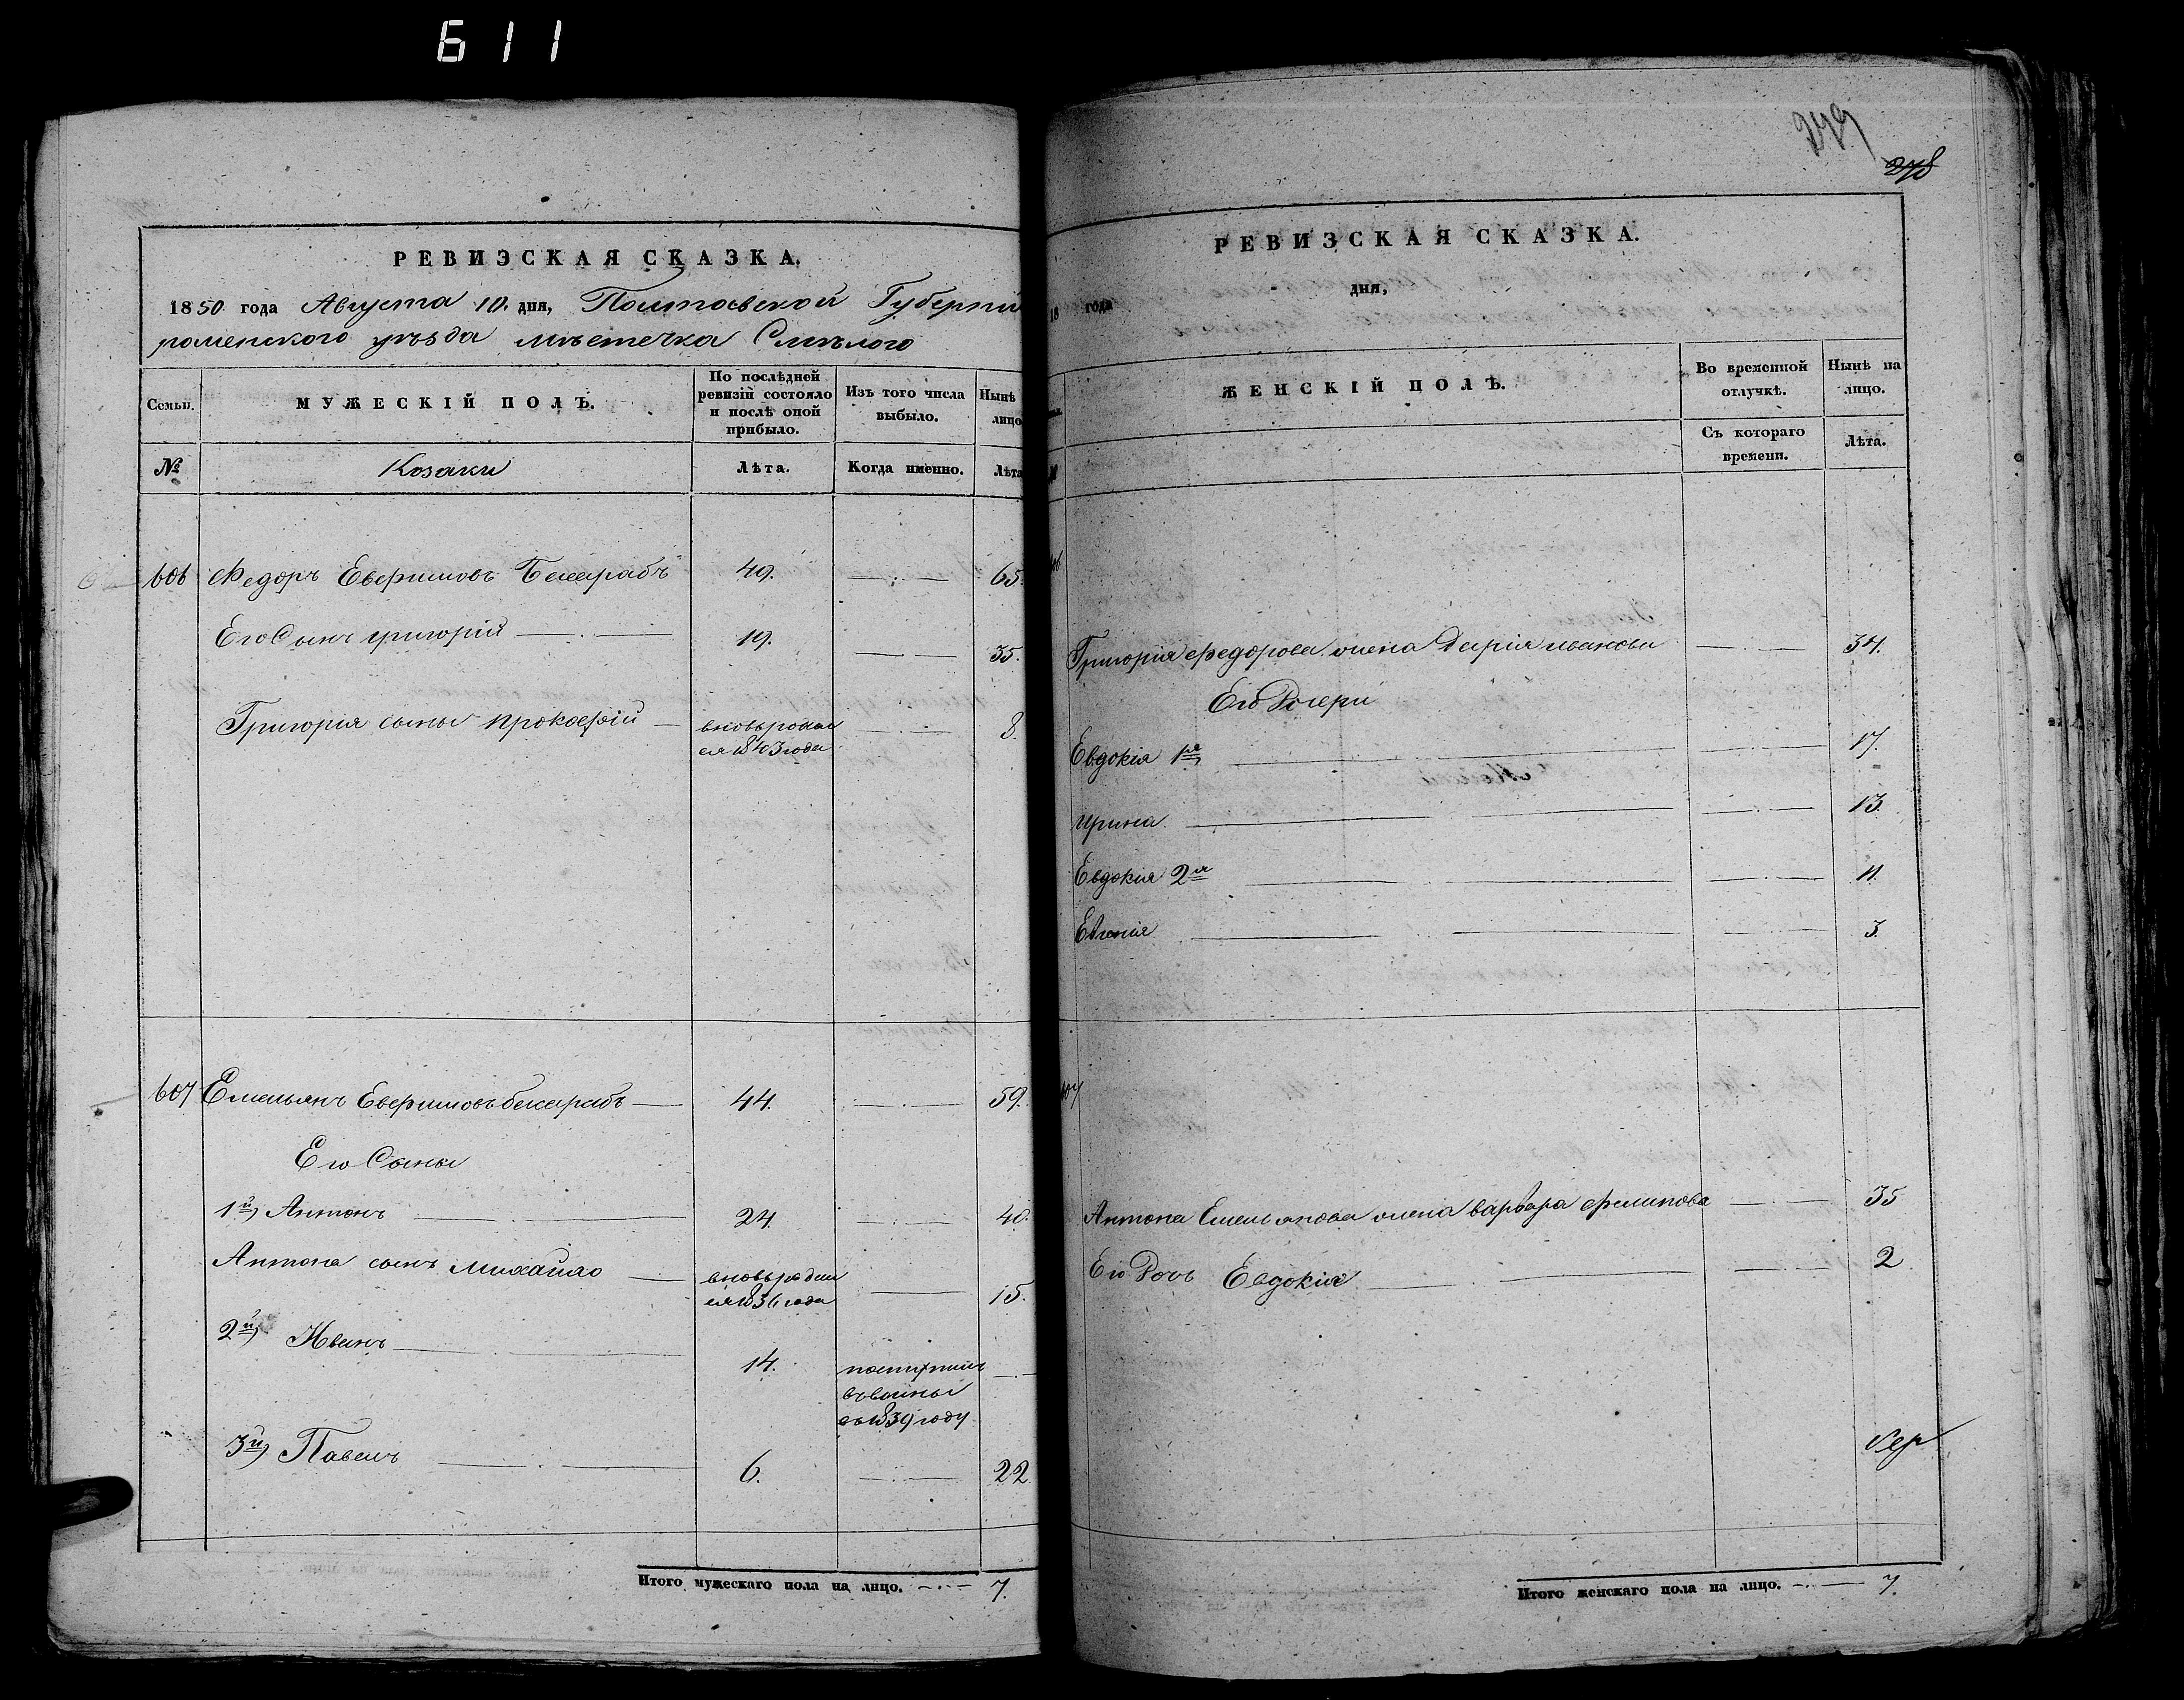 611
РЕВИЗСКАЯ СКАЗКА.
1850 года Августа 10. дня, Полтавской Губерніи
роменского уѣзда мѣстечка Смѣлого
Семьи.
МУЖЕСКІЙ ПОЛЪ.
По послѣдней ревизіи состояло и послѣ оной прибыло.
Изъ того числа выбыло.
Нынѣ лицо
№
Козаки
Лѣта.
Когда именно.
Лѣта
606 Федоръ Евфимовъ Бесарабъ 49. 65.
Его Сынъ григорій 19. 35.
Григорія сыны прокофій вновь родил 8.
ся 1843 года
607 Емельянъ Евфимовъ бесарабъ 44. 59.
Его Сыны
1й, Антонъ 24. 40.
Антона сынъ михайло вновь родил 15.
ся 1836 года
2й, Иванъ 14. поступилъ
въ воины
въ 1839 году
3й, Павелъ 6. 22.
Итого мужескаго пола на лицо. 7.
279
278
РЕВИЗСКАЯ СКАЗКА.
18 года дня,
ЖЕНСКІЙ ПОЛЪ.
Во временной отлучкѣ.
Нынѣ на лицо.
Съ котораго времени.
Лѣта.
Григорія федорова жена Дарія иванова 34.
Его Дочери
Евдокія 1я 17.
ирина 13.
Евдокія 2я 11.
Евгенія 3.
Антона Емельянова жена варвара филипова 35
Его Дочь Евдокія 2
Итого женскаго пола на лицо. 7.